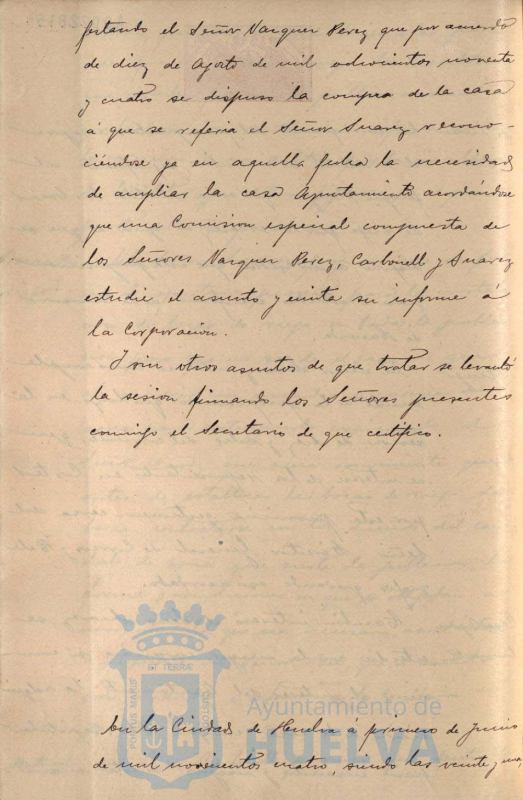 festando el Señor Vazquez Perez que por acuerdo
de diez de Agosto de mil ochocientos noventa
y cuatro se dispuso la compra de la casa
á que se referia el Señor Suarez recono-
ciéndose ya en aquella fecha la necesidad
de ampliar la casa Ayuntamiento acordándose
que una Comision especial compuesta de
los Señores Vazquez Perez, Carbonell y Suarez
estudie el asunto y emita su informe á
la Corporacion.
Y sin otros asuntos de que tratar se levantó
la sesion firmando los Señores presentes
conmigo el Secretario de que certifico.
PORTUS MARIS ET TERRÆ CUSTODIA
Ayuntamiento de
HUELVA
En la Ciudad de Huelva á primero de Junio
de mil novecientos cuatro, siendo las veinte y una,